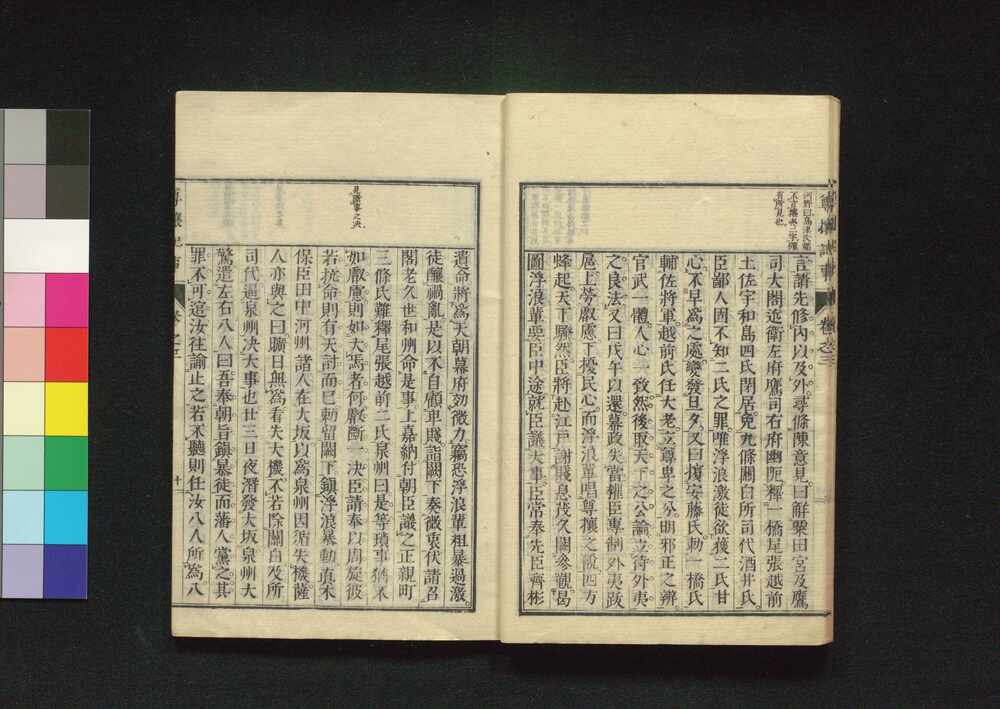 河野曰島津氏
有所見也
言請先修內以及外尋條陳意見曰解粟田宮及鷹
司大閤近衛左府鷹司右府幽阨釋一橋尾張越前
土佐宇和島四氏閉居免九條關白所司代酒井氏
臣鄙人固不知二氏之罪唯浮浪激徒欲獲二氏甘
心不早爲之處變發旦夕又曰複安藤氏勅一橋氏
輔佐將軍越前氏任大老立尊卑之分明邪正之辨
官武一體人心一致然後取天下之公論立待外夷
之良法又曰戊午以還幕政失當權臣專制外夷跋
扈上勞叡慮下擾民心而浮浪輩唱尊攘之說四方
蜂起天下騷然臣將赴江戶謝賤息茂久闕參觀曷
圖浮浪輩要臣中途就臣議大事臣常奉先臣齊彬
卷之三
見斷事之決
遺命將爲天朝幕府効微力竊恐浮浪輩粗暴過激
徒釀禍亂是以不自顧卑賤詣闕下奏微衷伏請召
閣老久世和州命是事上嘉納付朝臣議之正親町
三條氏難釋尾張越前二氏泉州曰是等瑣事猶不
如叡慮則如大焉者何叡斷一決臣請奉以周旋彼
若抗命則有天討而已勅留闕下鎭浮浪暴動眞木
保臣田中河州諸人在大坂以爲泉州因循失機薩
人亦與之曰曠日無爲看失大機不若除關白及所
司代逼泉州決大事也廿三日夜潛發大坂泉州大
驚遣左右八人曰吾奉朝旨鎭暴徒而藩人黨之其
罪不可逭汝往諭止之若不聽則任汝八人所爲八
十